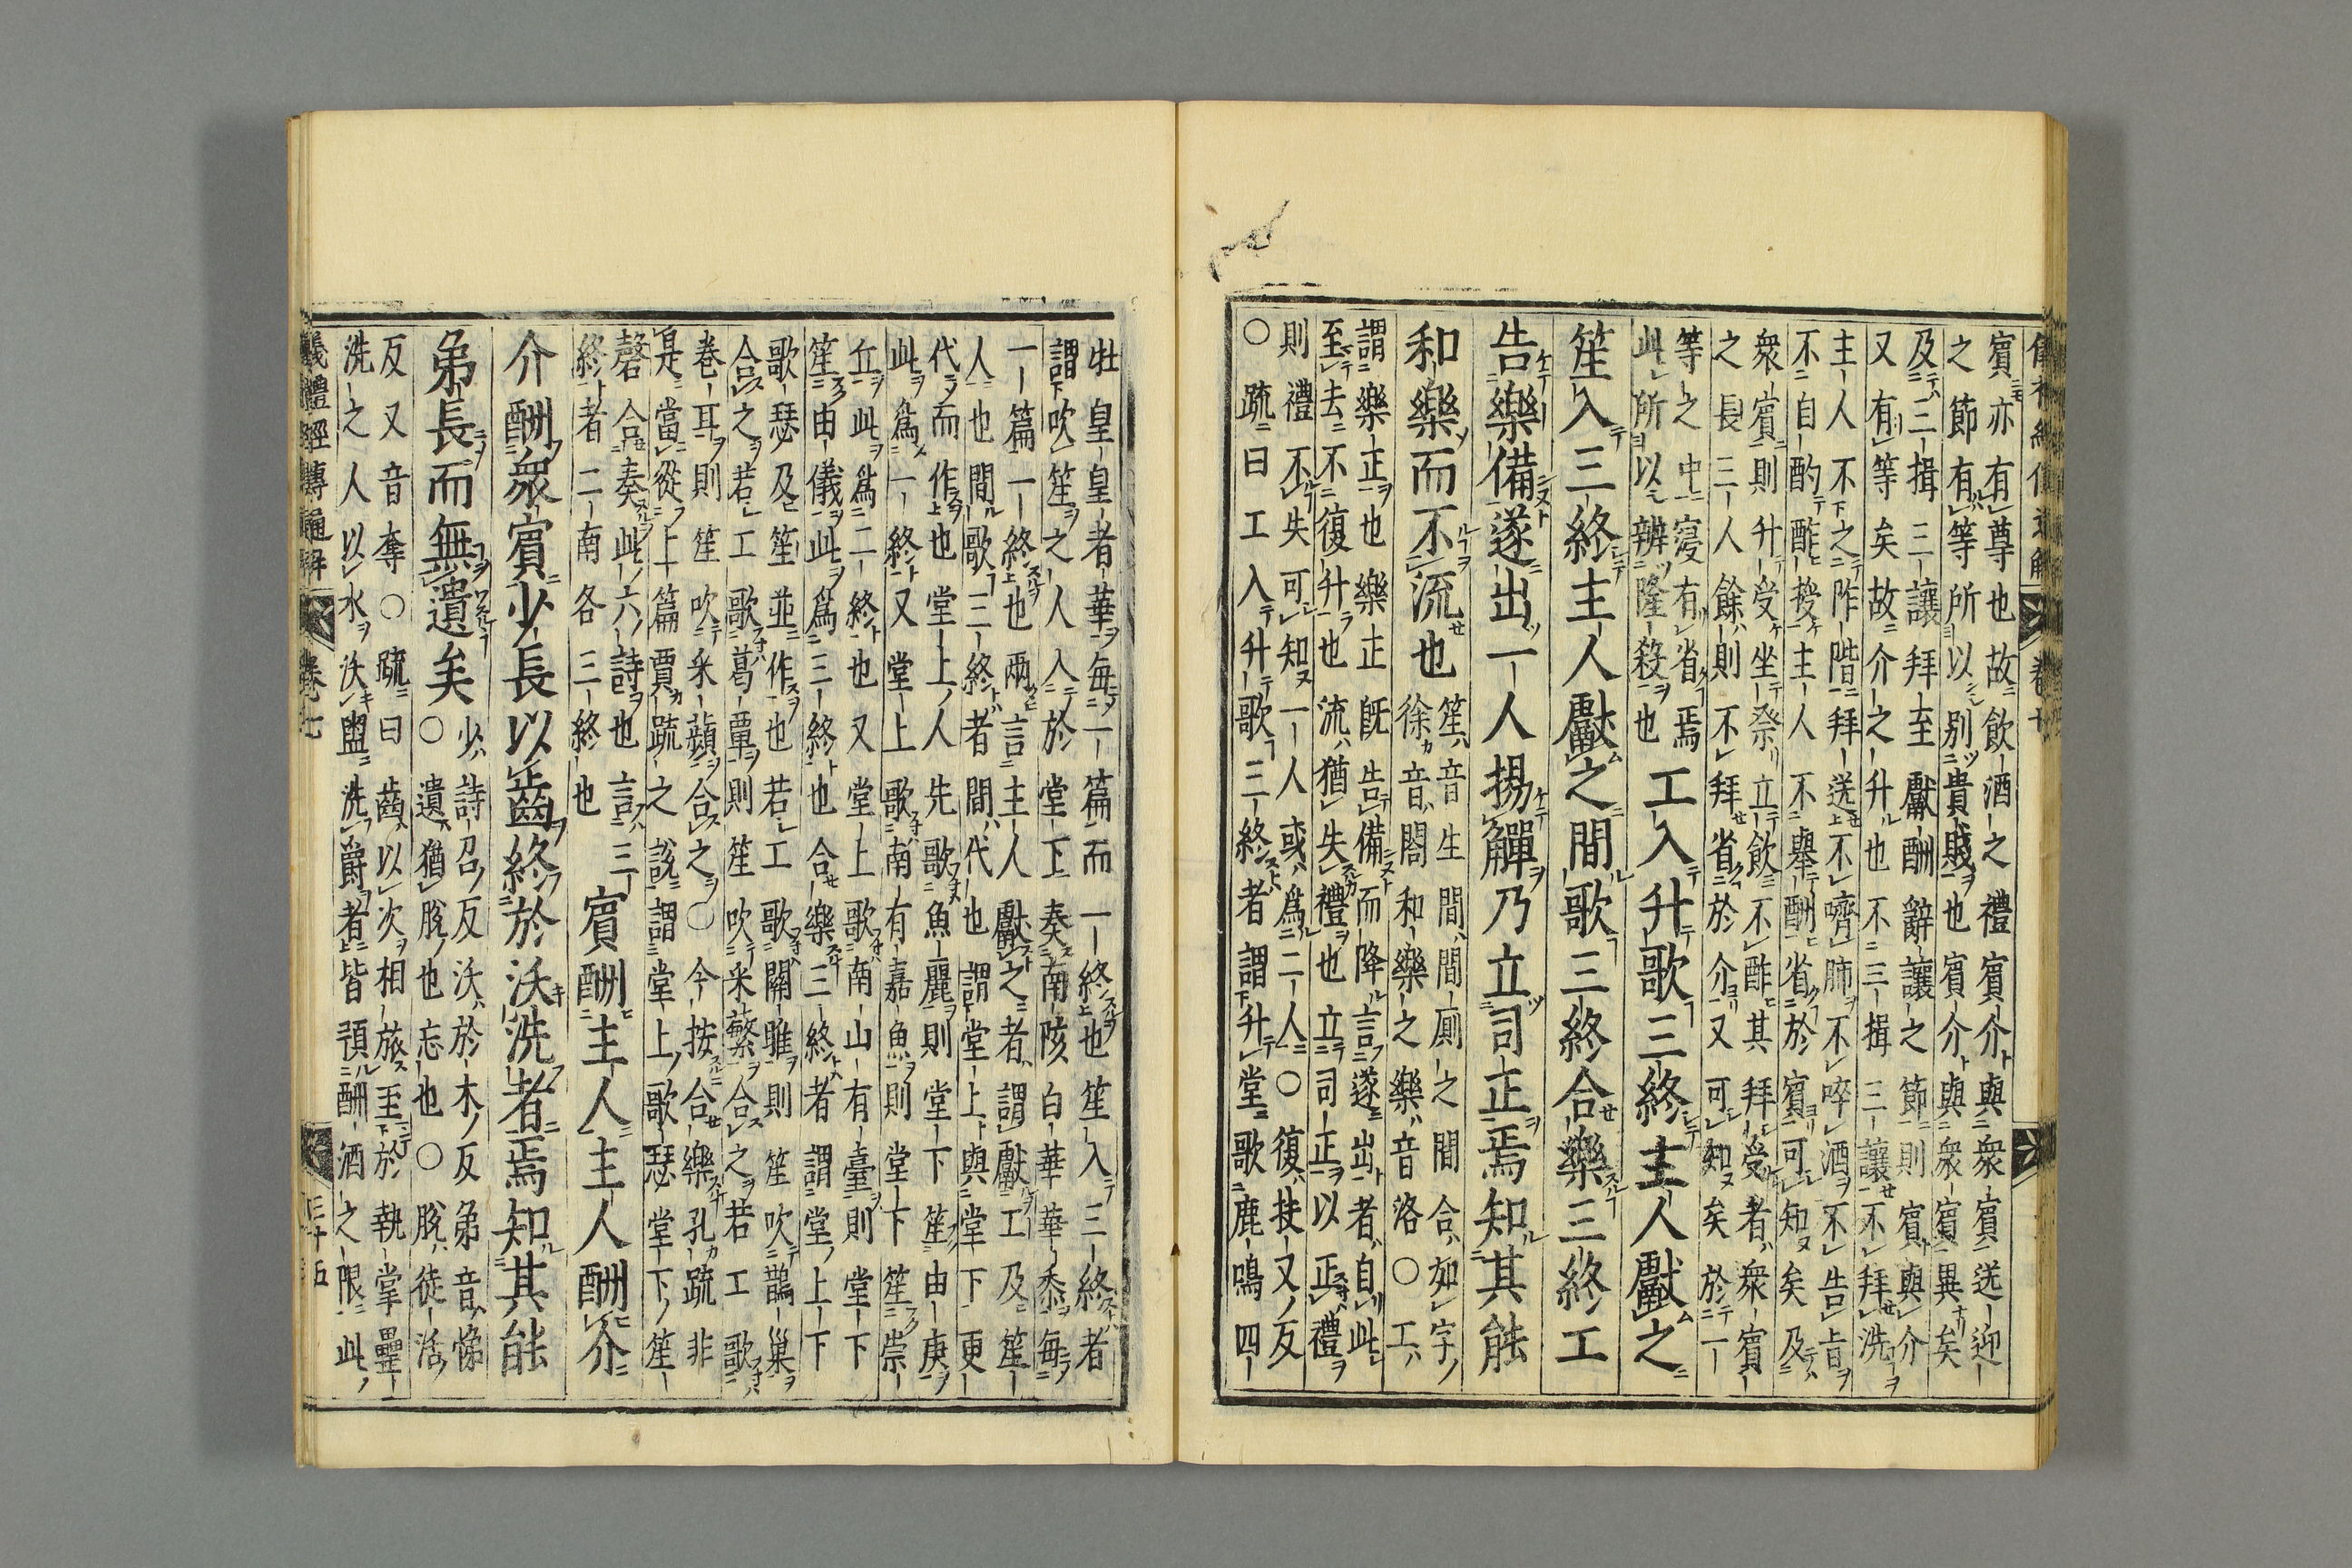 賓亦有尊也故飲酒之禮賓介與衆賓送迎
之節有等所以別貴賤也賓介與衆賓異矣
及三揖三讓拜至獻酬辭讓之節則賓與介
又有等矣故介之升也不三揖三讓不拜洗
主人不之阼階拜送不嚌肺不啐酒不告旨
不自酌酢授主人不舉酬省於賓可知矣及
衆賓則升受坐祭立飲不酢其拜受者衆賓
之長三人餘則不拜省於介又可知矣於一
等之中寔有省焉
此所以辨隆殺也
工入升歌三終主人獻之
笙入三終主人獻之間歌三終合樂三終工
告樂備遂出一人揚觶乃立司正焉知其能
和樂而不流也
笙音生間間厠之間合如字
徐音閤和樂之樂音洛○工
謂樂正也樂正既告備而降言遂出者自此
至去不復升也流猶失禮也立司正以正禮
則禮不失可知一人或為二人○復扶又反
○疏曰工入升歌三終者謂升堂歌鹿鳴四
牡皇皇者華每一篇而一終也笙入三終者
謂吹笙之人入於堂下奏南陔白華華黍每
一篇一終也兩言主人獻之者謂獻工及笙
人也間歌三終者間代也謂堂上與堂下更
代而作也堂上人先歌魚麗則堂下笙由庚
此為一終又堂上歌南有嘉魚則堂下笙崇
丘此為二終也又堂上歌南山有臺則堂下
笙由儀此為三終也合樂三終者謂堂上下
歌瑟及笙並作也若工歌關雎則笙吹鵲巢
合之若工歌葛覃則笙吹采蘩合之若工歌
卷耳則笙吹采蘋合之○今按合樂孔疏非
是當從上篇賈疏之說謂堂上歌瑟堂下笙
磬合奏此六詩也言三
終者二南各三終也
賓酬主人主人酬介
介酬衆賓少長以齒終於沃洗者焉知其能
弟長而無遺矣○
少詩召反沃於木反弟音悌
遺猶脫也忘也○脫徒活
反又音奪○疏曰齒以次相旅至於執掌罍
洗之人以水沃盥洗爵者皆預酬酒之限此
儀禮經傳通解　卷七　三十五